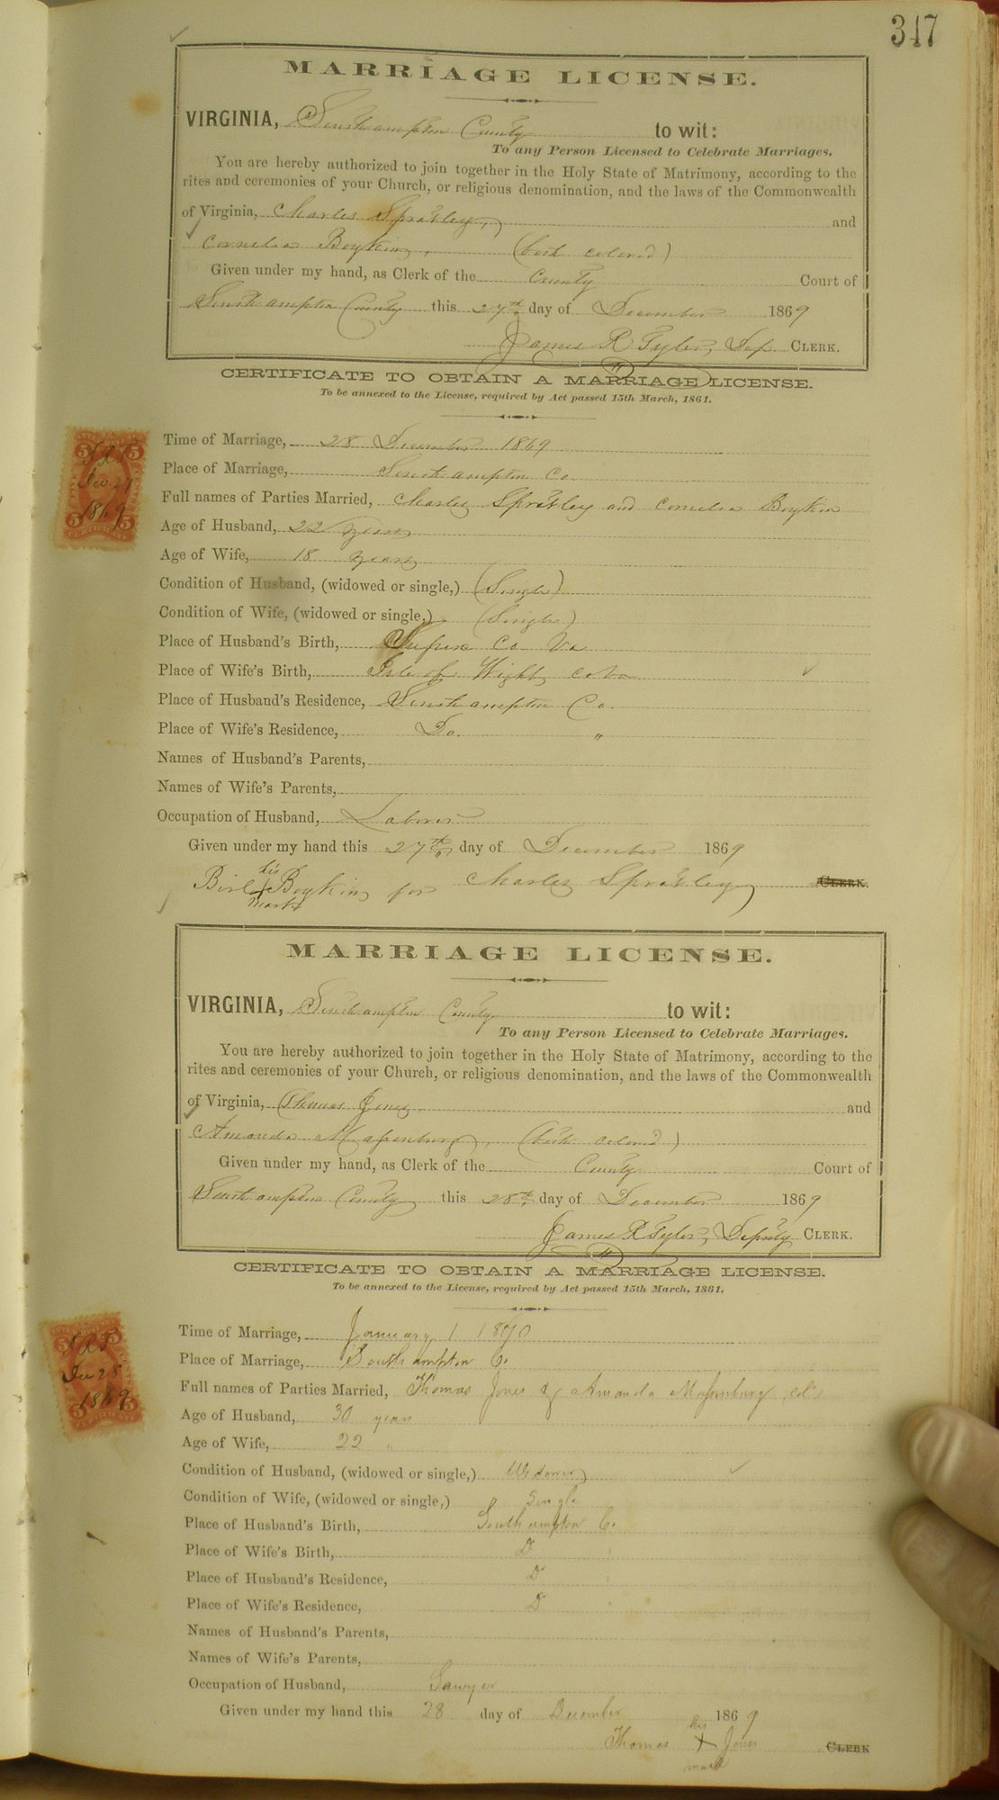 347
MARRIAGE LICENSE.
VIRGINIA, Southampton County to wit:
To any Person Licensed to Celebrate Marriages.
You are hereby authorized to join together in the Holy State of Matrimony, according to the
rites and ceremonies of your Church, or religious denomination, and the laws of the Commonwealth
of Virginia, Charles Spratley, and
Cornelia Boykin, (both colored)
Given under my hand, as Clerk of the County Court of
Southampton County this 27th day of December 1869
James R Tyler, Dep CLERK.
CERTIFICATE TO OBTAIN A MARRIAGE LICENSE.
To be annexed to the License, required by Act passed 15th March, 1861.
Time of Marriage, 28 December 1869
Place of Marriage, Southampton Co
Full names of Parties Married, Charles Spratley and Cornelia Boykin
Age of Husband, 22 years
Age of Wife, 18 years
Condition of Husband, (widowed or single,) (Single)
Condition of Wife, (widowed or single,) (Single)
Place of Husband's Birth, Co Va
Place of Wife's Birth, Isle of Wight Co Va
Place of Husband's Residence, Southampton Co.
Place of Wife's Residence, Do. "
Names of Husband's Parents,
Names of Wife's Parents,
Occupation of Husband, Laborer
Given under my hand this 27th day of December 1869
his
Boykin for Charles Spratley CLERK.
mark
1869
MARRIAGE LICENSE.
VIRGINIA, Southampton County to wit:
To any Person Licensed to Celebrate Marriages.
You are hereby authorized to join together in the Holy State of Matrimony, according to the
rites and ceremonies of your Church, or religious denomination, and the laws of the Commonwealth
of Virginia, Thomas Jones and
Amanda Mafenburg, (both colored)
Given under my hand, as Clerk of the County Court of
Southampton County this 28th day of December 1869
James R Tyler, Deputy CLERK.
CERTIFICATE TO OBTAIN A MARRIAGE LICENSE.
To be annexed to the License, required by Act passed 15th March, 1861.
Time of Marriage, January 1 1870
Place of Marriage, Southampton Co.
Full names of Parties Married, Thomas Jones & Amanda Mafenburg cold
Age of Husband, 30 years
Age of Wife, 22 "
Condition of Husband, (widowed or single,) Widower
Condition of Wife, (widowed or single,) Single
Place of Husband's Birth, Southampton Co.
Place of Wife's Birth, D
Place of Husband's Residence, D
Place of Wife's Residence, D
Names of Husband's Parents,
Names of Wife's Parents,
Occupation of Husband, Sawyer
Given under my hand this 28 day of December 1869
his
Thomas X Jones CLERK
mark
1869